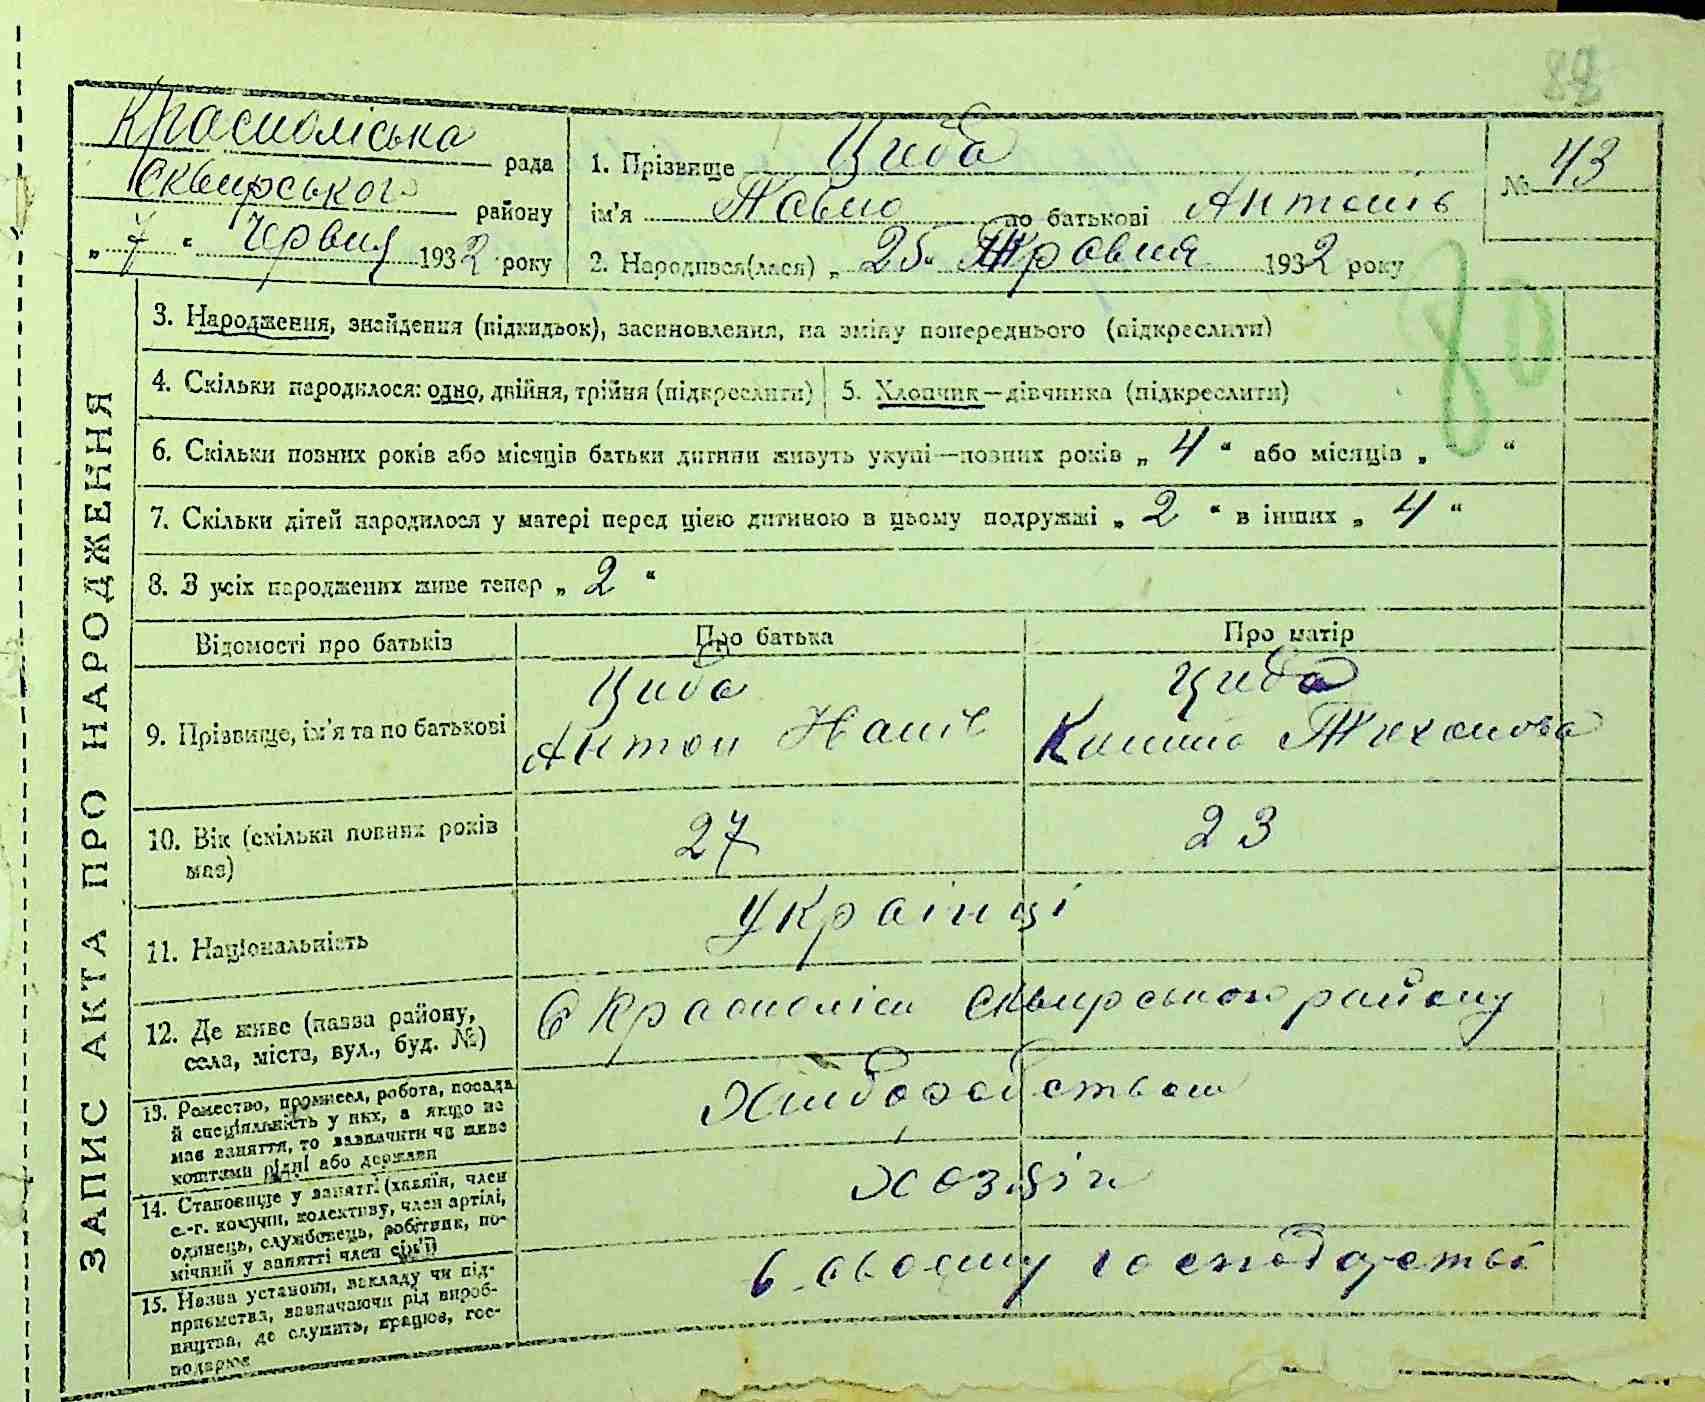 88
Красноліська рада
Сквирського району
„ 7 “ Червня 1932 року
1. Прізвище Циба
ім'я Павло по батькові Антонів
№ 43
2. Народився(лася) „ 25 “ Травня 1932 року
80
3. Народження, знайдення (підкидьок), засиновлення, на зміну попереднього (підкреслити)
4. Скільки народилося: одно, двійня, трійня (підкреслити)
5. Хлопчик—дівчинка (підкреслити)
6. Скільки повних років або місяців батьки дитини живуть укупі—повних років „ 4 “ або місяців „ “
7. Скільки дітей народилося у матері перед цією дитиною в цьому подружжі „ 2 “ в інших „ 4 “
8. З усіх народжених живе тепер „ 2 “
ЗАПИС АКТА ПРО НАРОДЖЕННЯ
Відомості про батьків
Про батька
Про матір
9. Прізвище, ім'я та по батькові
Циба
Антон
Циба
Тихонова
10. Вік (скільки повних років
має)
27
23
11. Національність
Українці
12. Де живе (назва району,
села, міста, вул., буд. №)
с Краснолісы Сквирського району
13. Ремество, промисел, робота, посада
й спеціяльність у них, а якщо не
має заняття, то зазначити чи живе
коштами рідні або держави
Хліборобством
14. Становище у занятті (хазяїн, член
с.-г. комуни, колективу, член артілі,
одинець, службовець, робітник, по-
мічний у занятті член сім'ї)
хозяін
15. Назва установи, закладу чи під-
приємства, зазначаючи рід вироб-
ництва, де служить, працює, гос-
подарює
в своєму господарстві